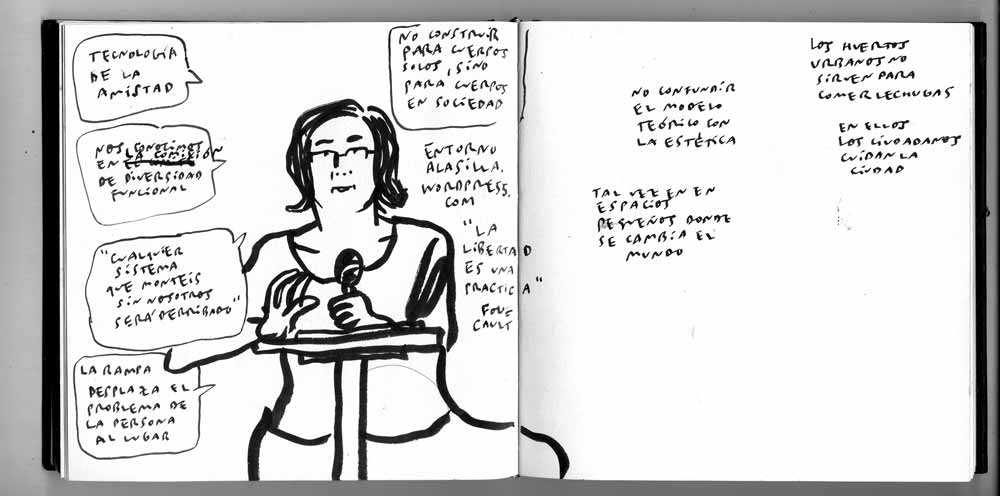 TECNOLOGÍA
DE LA
AMISTAD
NOS CONOCIMOS
EN LA COMISIÓN
DE DIVERSIDAD
FUNCIONAL
"CUALQUIER
SISTEMA
QUE MONTEIS
SIN NOSOTROS
SERÁ DERRIBADO"
LA RAMPA
DESPLAZA EL
PROBLEMA DE
LA PERSONA
AL LUGAR
NO CONSTRUIR
PARA CUERPOS
SOLOS, SINO
PARA CUERPOS
EN SOCIEDAD
ENTORNO
ALASILLA.
WORDPRESS.
COM
"LA
LIBERTAD
ES UNA
PRACTICA"
FOU
CAULT
NO CONFUNDIR
EL MODELO
TEÓRICO CON
LA ESTÉTICA
TAL VEZ EN EN
ESPACIOS
PEQUEÑOS DONDE
SE CAMBIA EL
MUNDO
LOS HUERTOS
URBANOS NO
SIRVEN PARA
COMER LECHUGAS
EN ELLOS
LOS CIUDADANOS
CUIDAN LA
CIUDAD